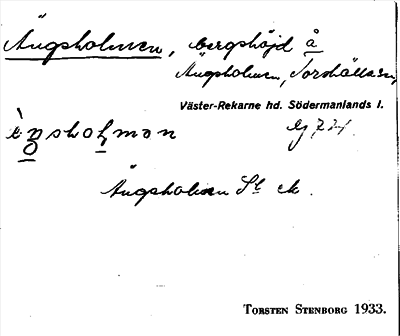 Ängsholmen, bergshöjd å
Ängsholmen, Torshälla sn,
Väster-Rekarne hd. Södermanlands l.
ängsholmen
Ängsholmen St. ek.
TORSTEN STENBORG 1933.